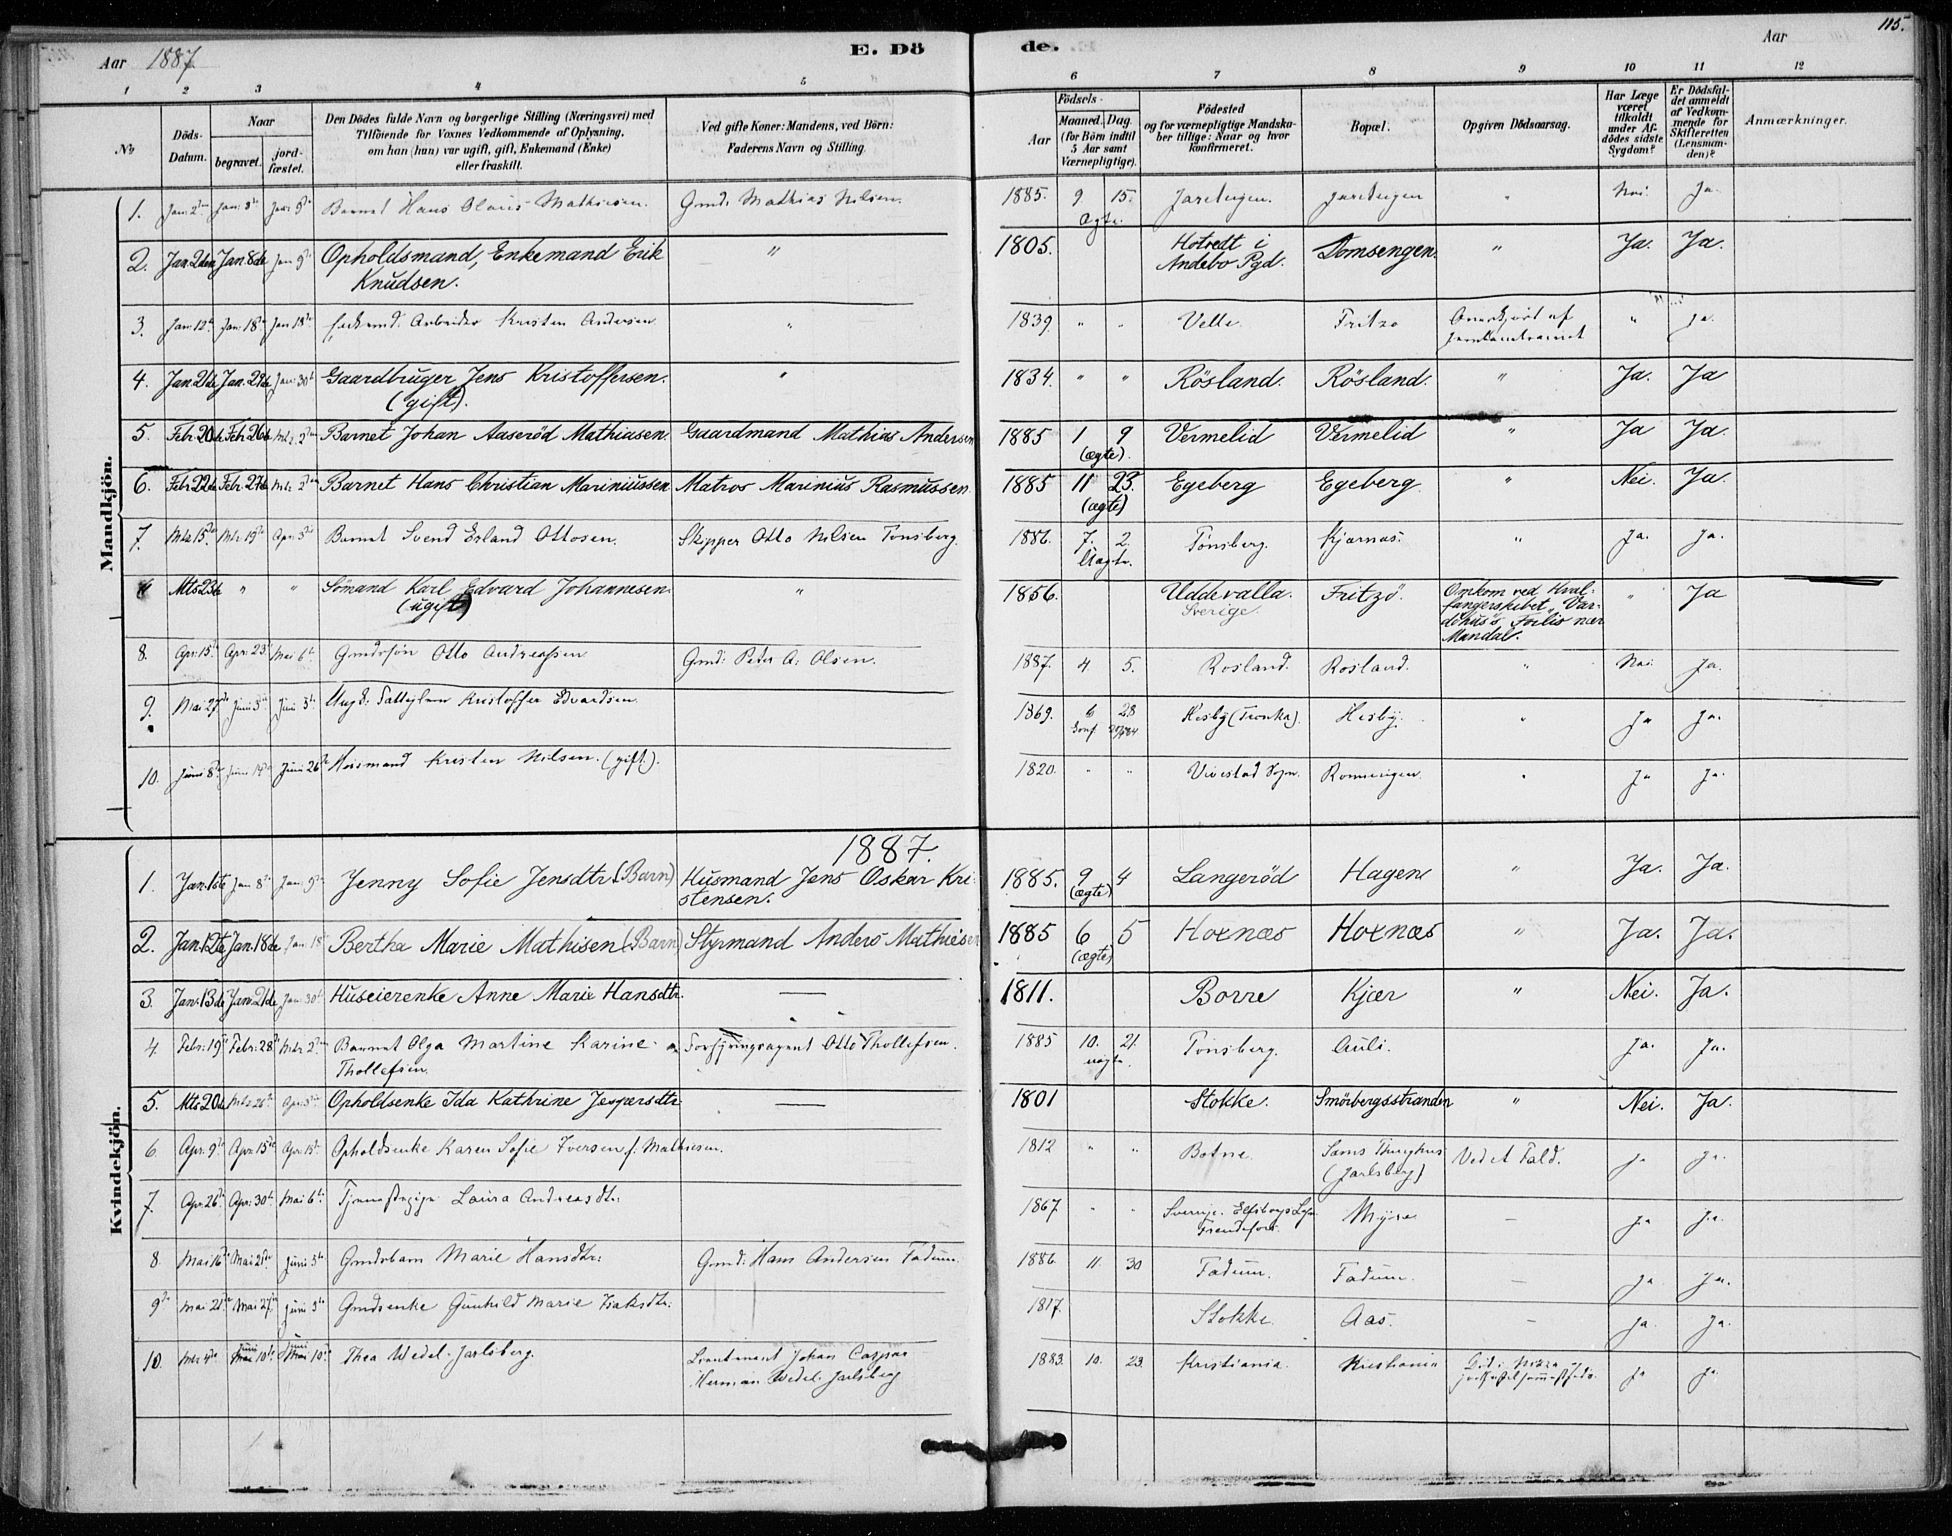 115.
Aar 1887
E. Dö
de.
Aar
1 2 3 4 5 6 7 8 9 10 11 12
No
Döds-Datum.
Naar
begravet.
jord-fæstet.
Den Dödes fulde Navn og borgerlige Stilling (Næringsvei) med
Tilföiende for Voxnes Vedkommende af Oplysning,
om han (hun) var ugift, gift, Enkemand (Enke)
eller fraskilt.
Ved gifte Koner: Mandens, ved Börn:
Faderens Navn og Stilling.
Aar
Födsels-
Maaned. Dag.
(for Börn indtil
5 Aar samt
Værnepligtige).
Födested
og for værnepligtige Mandska-
ber tillige: Naar og hvor
konfirmeret.
Bopæl.
Opgiven Dödsaarsag.
Har Læge
været
tilkaldt
under Af-
dödes sidste
Sygdom?
Er Dödsfal-
det anmeldt
af Vedkom-
mende for
Skifteretten
(Lensman-
den)?
Anmærkninger.
Mandkjön.
1. Jan: 2den Jan: 8de Jan: 9de Barnet Hans Olaus Mathiesen. Gmd: Mathias Nilsen. 1885. 9 15. Jareteigen. Jareteigen " Nei. Ja.
Ægte.
2. Jan. 2den Jan. 8de Jan 9de Opholdsmand, Enkemand Erik " 1805. Hotvedt i Domsengen. " Ja. Ja.
Knudsen. Andebo Pgd.
3. Jan: 12te Jan: 18de Jan 18de Arbeider Kristen Andersen " 1839. " " Velle. Fritzo Overkjört af " Ja.
4. Jan. 21de Jan. 29de Jan: 30te Gaardbruger Jens Kristoffersen. " 1834. " " Rösland. Rösland. " Ja. Ja
(gift).
5. Febr. 20de Febr. 26de Mts. 2den Barnet Johan Aaseröd Mathiasen. Gaardmand Mathias Andersen 1885 1 9 Vermelid Vermelid " Ja Ja.
(ægte).
6. Febr. 22de Febr. 27de Mts 2den Barnet Hans Christian Mariniussen Matros Marinius Rasmussen. 1885 11 23. Egeberg Egeberg. " Nei. Ja.
(ægte)
7. Mts 15de Mts 19de Apr: 3die Barnet Svend Erland Ottosen. Skipper Otto Nilsen Tönsberg. 1886. 7. 2. Tönsberg. Kjærnæs. " Ja. Ja.
Uægte.
Mts 23de " " Sömand Karl Edvard Johannesen. " 1856. Uddevalla. Fritzö. Omkom ved Hval- " Ja
(ugift) Sverige. fangerskibet "Var-
döhus's Forlis nær
Mandal.
8. Apr: 15de Apr: 23de Mai 6te Gmdssön Otto Andreassen Gmd: Peder A. Olsen. 1887. 4 5. Rosland. Rosland. " Nei. Ja.
9. Mai 27de Juni 3die Juni 3die Ungd: Kristoffer Edvardsen. 1869. 6 28 Hesby (Tronka). Hesby. " Ja Ja.
10. Juni 8de Juni 14de Juni 26de Huusmand Kristen Nilsen. (gift). 1820. " " Vivestad Sogn. Ronningen. " Ja Ja.
1887.
Kvindekjön.
1. Jan. 1ste Jan 8de Jan. 9de Jenny Sofie Jensdtr. (Barn) Husmand Jens Oskar Kri- 1885. 9 4 Langeröd Hagen " Ja. Ja.
stensen. (ægte)
2. Jan. 12te Jan. 18de Jan. 18 Bertha Marie Mathisen (Barn) Styrmand Anders Mathiesen 1885 6 5 Hoxnæs Hoxnæs " Ja. Ja.
(ægte)
3. Jan. 13de Jan. 21de Jan: 30te Huseierenke Anne Marie Hansdtr. — 1811. Borre Kjær " Nei. Ja.
4. Febr: 19de Febr: 28de Mts 2den Barnet Olga Martine Karine Forsyringsagent Otto Thollefsen. 1885 10. 21. Tönsberg. Auli. Ja. Ja.
Thollefsen. uægte.
5. Mts. 20de Mts. 26de Apr. 3die Opholdsenke Ida Kathrine Jespersdtr. — 1801 Stokke. Smörbergsstranden " Nei. Ja.
6 Apr: 9de Apr: 15de Apr: 15de Opholdsenke Karen Sofie Iversen f. Mathiesen. 1812 " " Botne. (Jarlsberg) Ved et Fald. Ja Ja.
7. Apr: 26de Apr: 30te Mai 6te Tjenestepige Laura Andreasdtr: 1867 " " Sverige. Elfsborgs Len Myre — Ja Ja.
8 Mai 16de Mai 21de Juni 3die Gmdsbarn Marie Hansdtr: Gmd: Hans Andersen Fadum. 1886. 11. 30 Fadum. Fadum. — Ja Ja.
9de Mai 21de Mai 27de Juni 3die Gmdsenke Gunhild Marie Isaksdtr: 1817. Stokke Aas. — Ja. Ja.
10. Mts 4de Juni 10de Juni 10de Thea Wedel-Jarlsberg. Lieutenant Johan Caspar 1883. 10. 23. Kristiania. Kristiania Ja Ja.
Herman Wedel-Jarlsberg